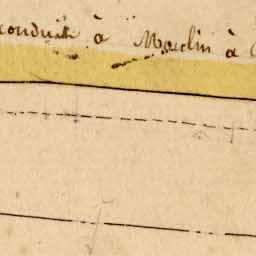 conduit à Moulin à